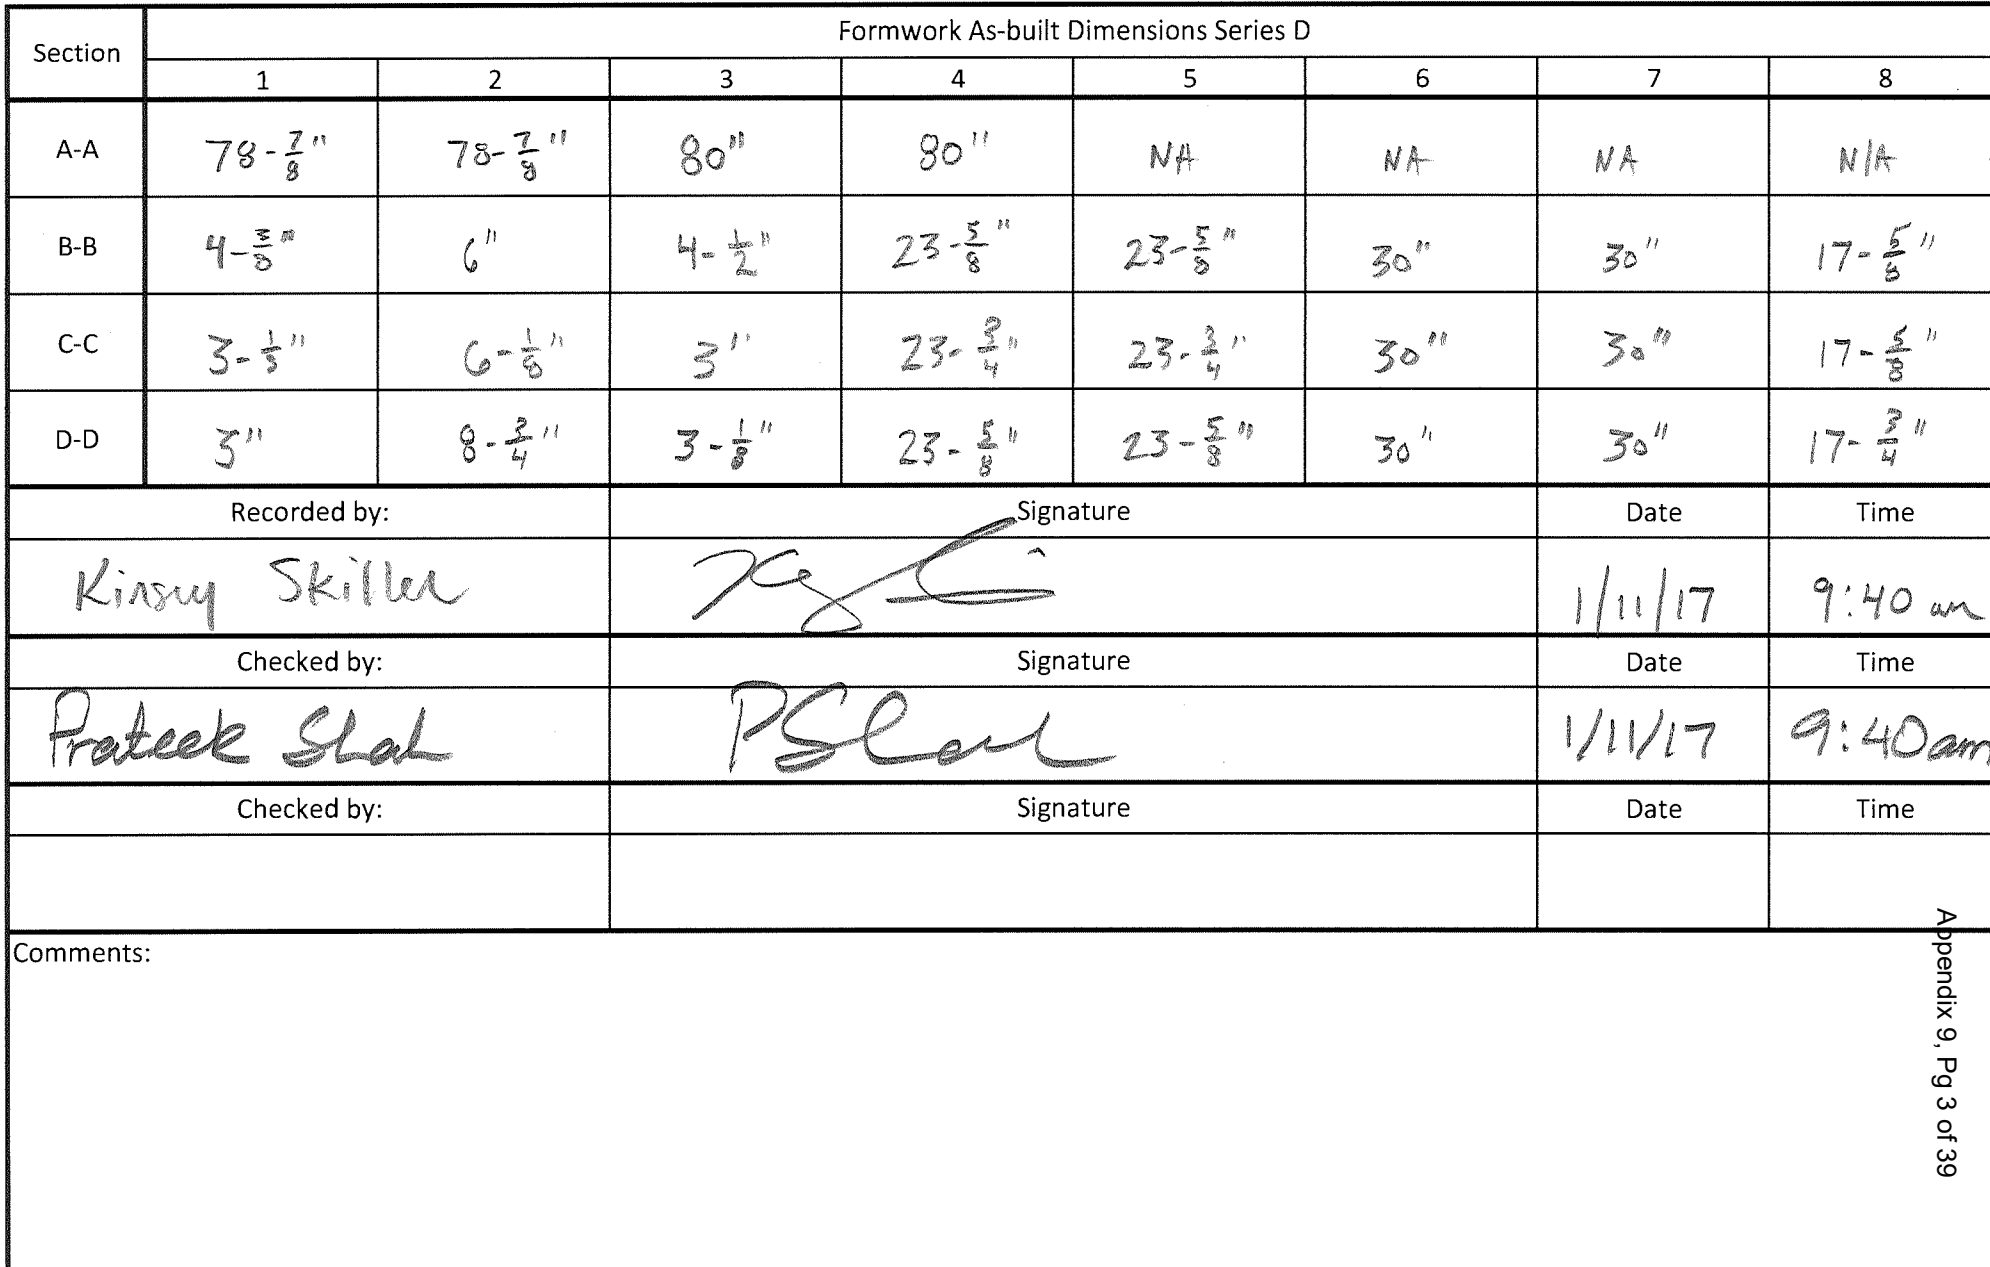 Formwork As-built Dimensions Series D
Section
1 2 3 4 5 6 7 8
A-A 78-7/8" 78-7/8" 80" 80" NA NA NA N/A
B-B 4-3/8" 6" 4-1/2" 23-5/8" 23-5/8" 30" 30" 17-5/8"
C-C 3-1/8" 6-1/8" 3" 23-3/4" 23-3/4" 30" 30" 17-5/8"
D-D 3" 8-3/4" 3-1/8" 23-5/8" 23-5/8" 30" 30" 17-3/4"
Recorded by: Signature Date Time
Skiller 1/11/17 9:40 am
Checked by: Signature Date Time
Prateek Shah PShah 1/11/17 9:40am
Checked by: Signature Date Time
Comments:
Appendix 9, Pg 3 of 39